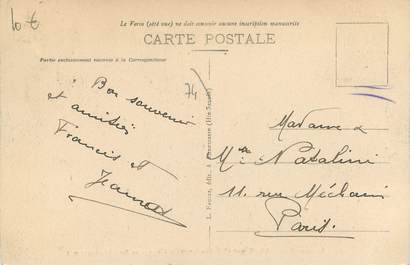 10 €
Le Verso (côté vue) ne doit contenir aucune inscription manuscrite
CARTE POSTALE
Partie exclusivement réservée à la Correspondance
74
Bon souvenir
et amitiés
Francis et
Jeanne
Madame &
Mr Natalini
11 rue Méchain
Paris.